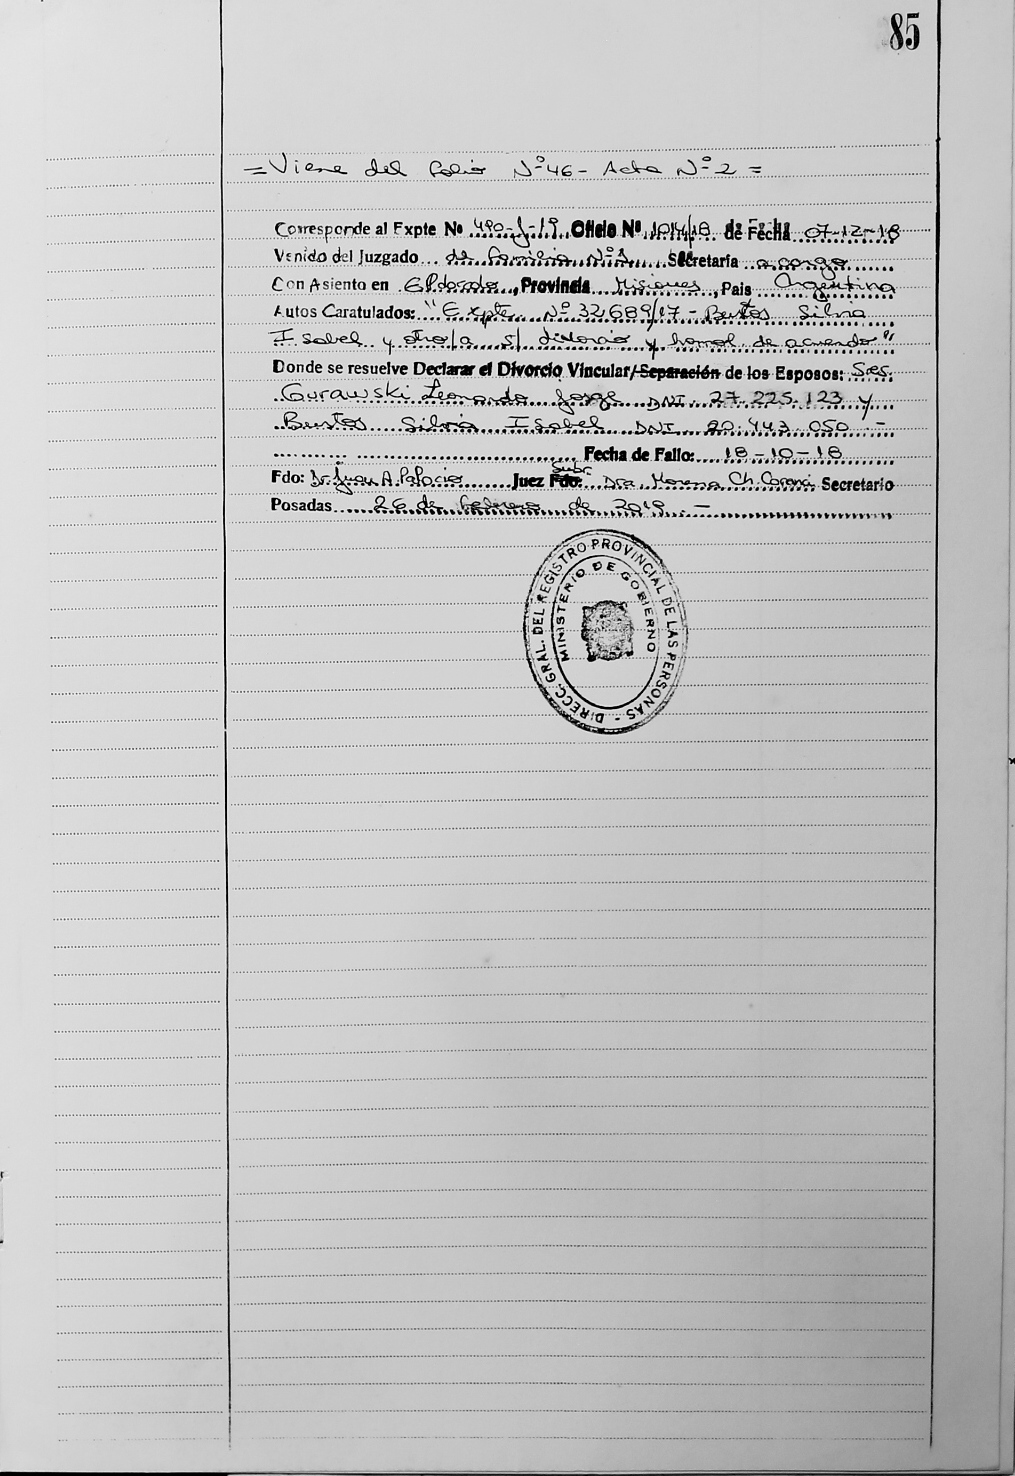 85
= Viene del folio Nº 46 - Acta Nº 2 =
Corresponde al Expte Nº 490-J-19 Oficio Nº 1014/18 de Fecha 07-12-18
Venido del Juzgado de familia Nº 1 Secretaría a cargo
Con Asiento en Eldorado, Provincia Misiones, País Argentina
Autos Caratulados: "Expte. Nº 32.689/17 - Bustos Silvia
Isabel y otro/a s/ divorcio y homol. de acuerdo"
Donde se resuelve Declarar el Divorcio Vincular/Separación de los Esposos: Sres.
Gurawski Leonardo Jorge DNI 27.225.123 y
Bustos Silvia Isabel DNI 20.443.050.-
Fecha de Fallo: 18-10-18
Fdo: Dr. Juan A. Palacio Juez Subr. Fdo: Dra. Morena Ch. Secretario
Posadas 26 de febrero de 2019.-
DIRECC. GRAL. DEL REGISTRO PROVINCIAL DE LAS PERSONAS -
MINISTERIO DE GOBIERNO